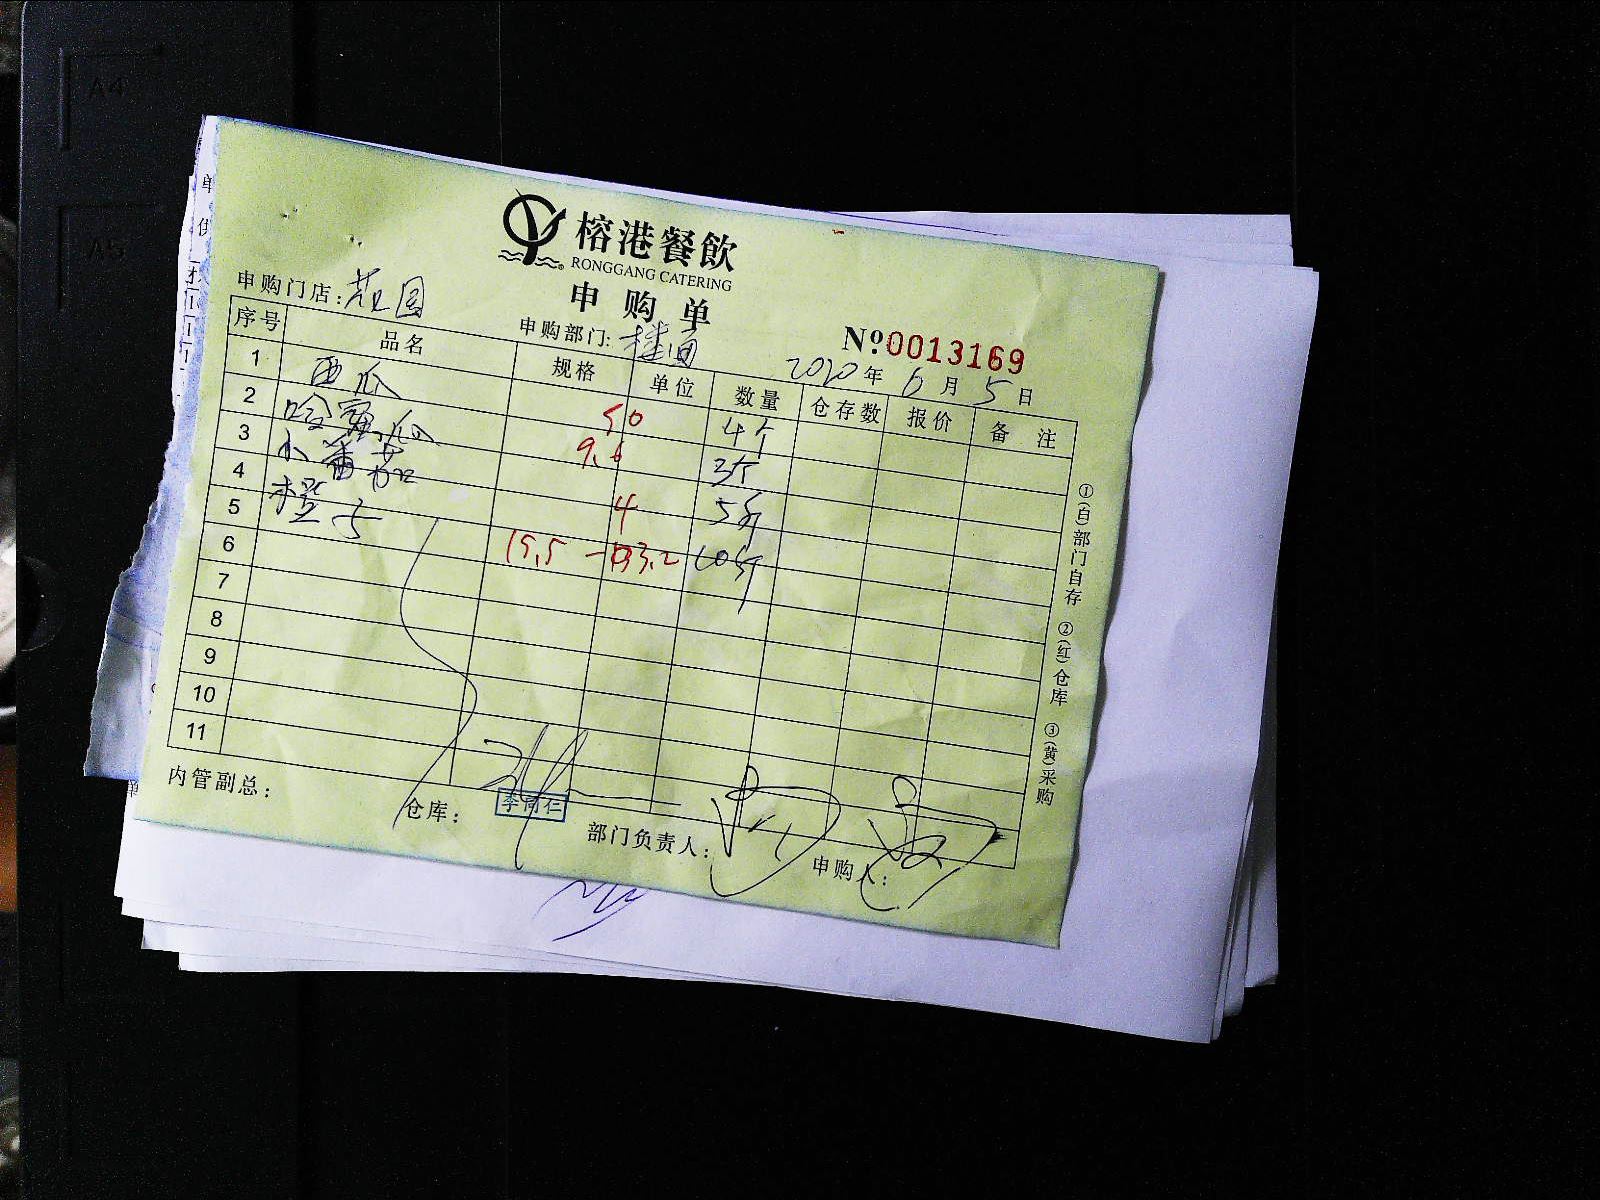 A4
A5
榕港餐飲
RONGGANG CATERING
申购单
申购门店:
申购部门: 楼面
№0013169
2020年6月5日
序号 品名 规格 单位 数量 仓存数 报价 备注
1 西瓜 50 4个
2 哈蜜瓜 9.6 3个
3 小番茄 4 5斤
4 橙子 15.5 10斤
5
6
7
8
9
10
11
内管副总:
仓库:
部门负责人:
申购人:
①(白)部门自存 ②(红)仓库 ③(黄)采购